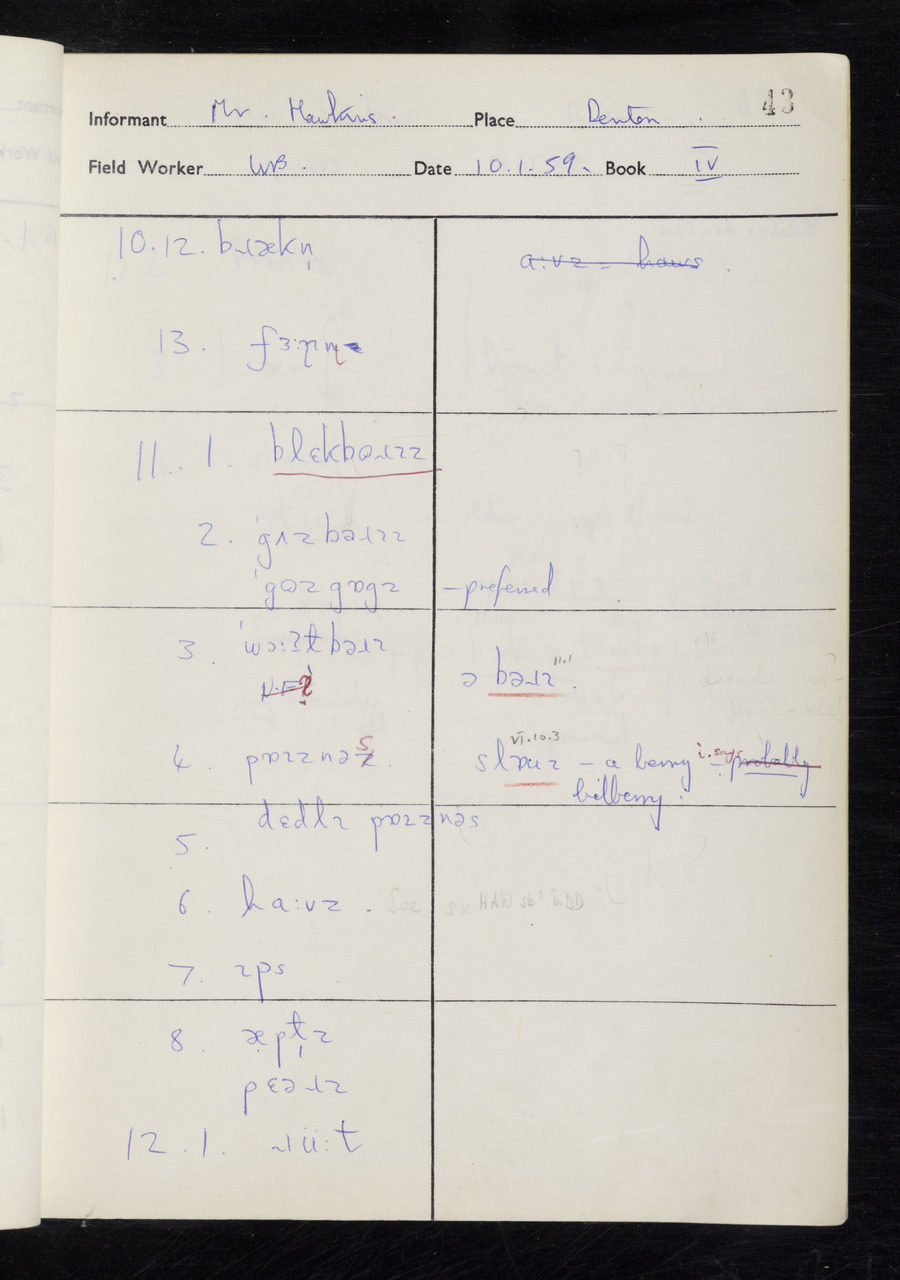 43
Informant Mr. Hawkins. Place Denton.
Field Worker WB. Date 10.1.59. Book IV
10.12. bɹækn̩ a:vz = haws.
13. fɜ:ɻn
11. 1. blɛkbəɹɪz
2. 'gɪzbəɹɪz
'gʊzgɒgz – preferred
3. 'wɔ:ʔtbəɹɪ
N.F. ? ə bəɹɪ 11.1
4. pɒɪznəs VI.10.3 i. says – probably
– a berry
bilberry.
5. dɛdlɪ pɒɪznəs
6. ha:vz. See s.v. HAW sb¹ in DD
7. ɪps
8. æptɪ
pɛəɹɪ
12.1. ɹü:t